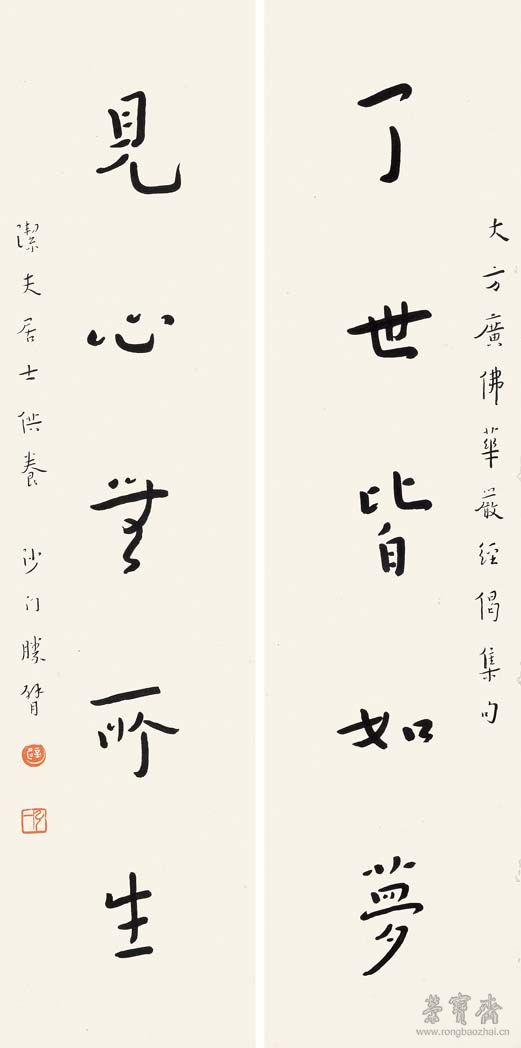 大方廣佛華嚴經偈集句
了世皆如夢
見心無所生
潔夫居士供養 沙门勝臂
榮寶齋
www.rongbaozhai.cn